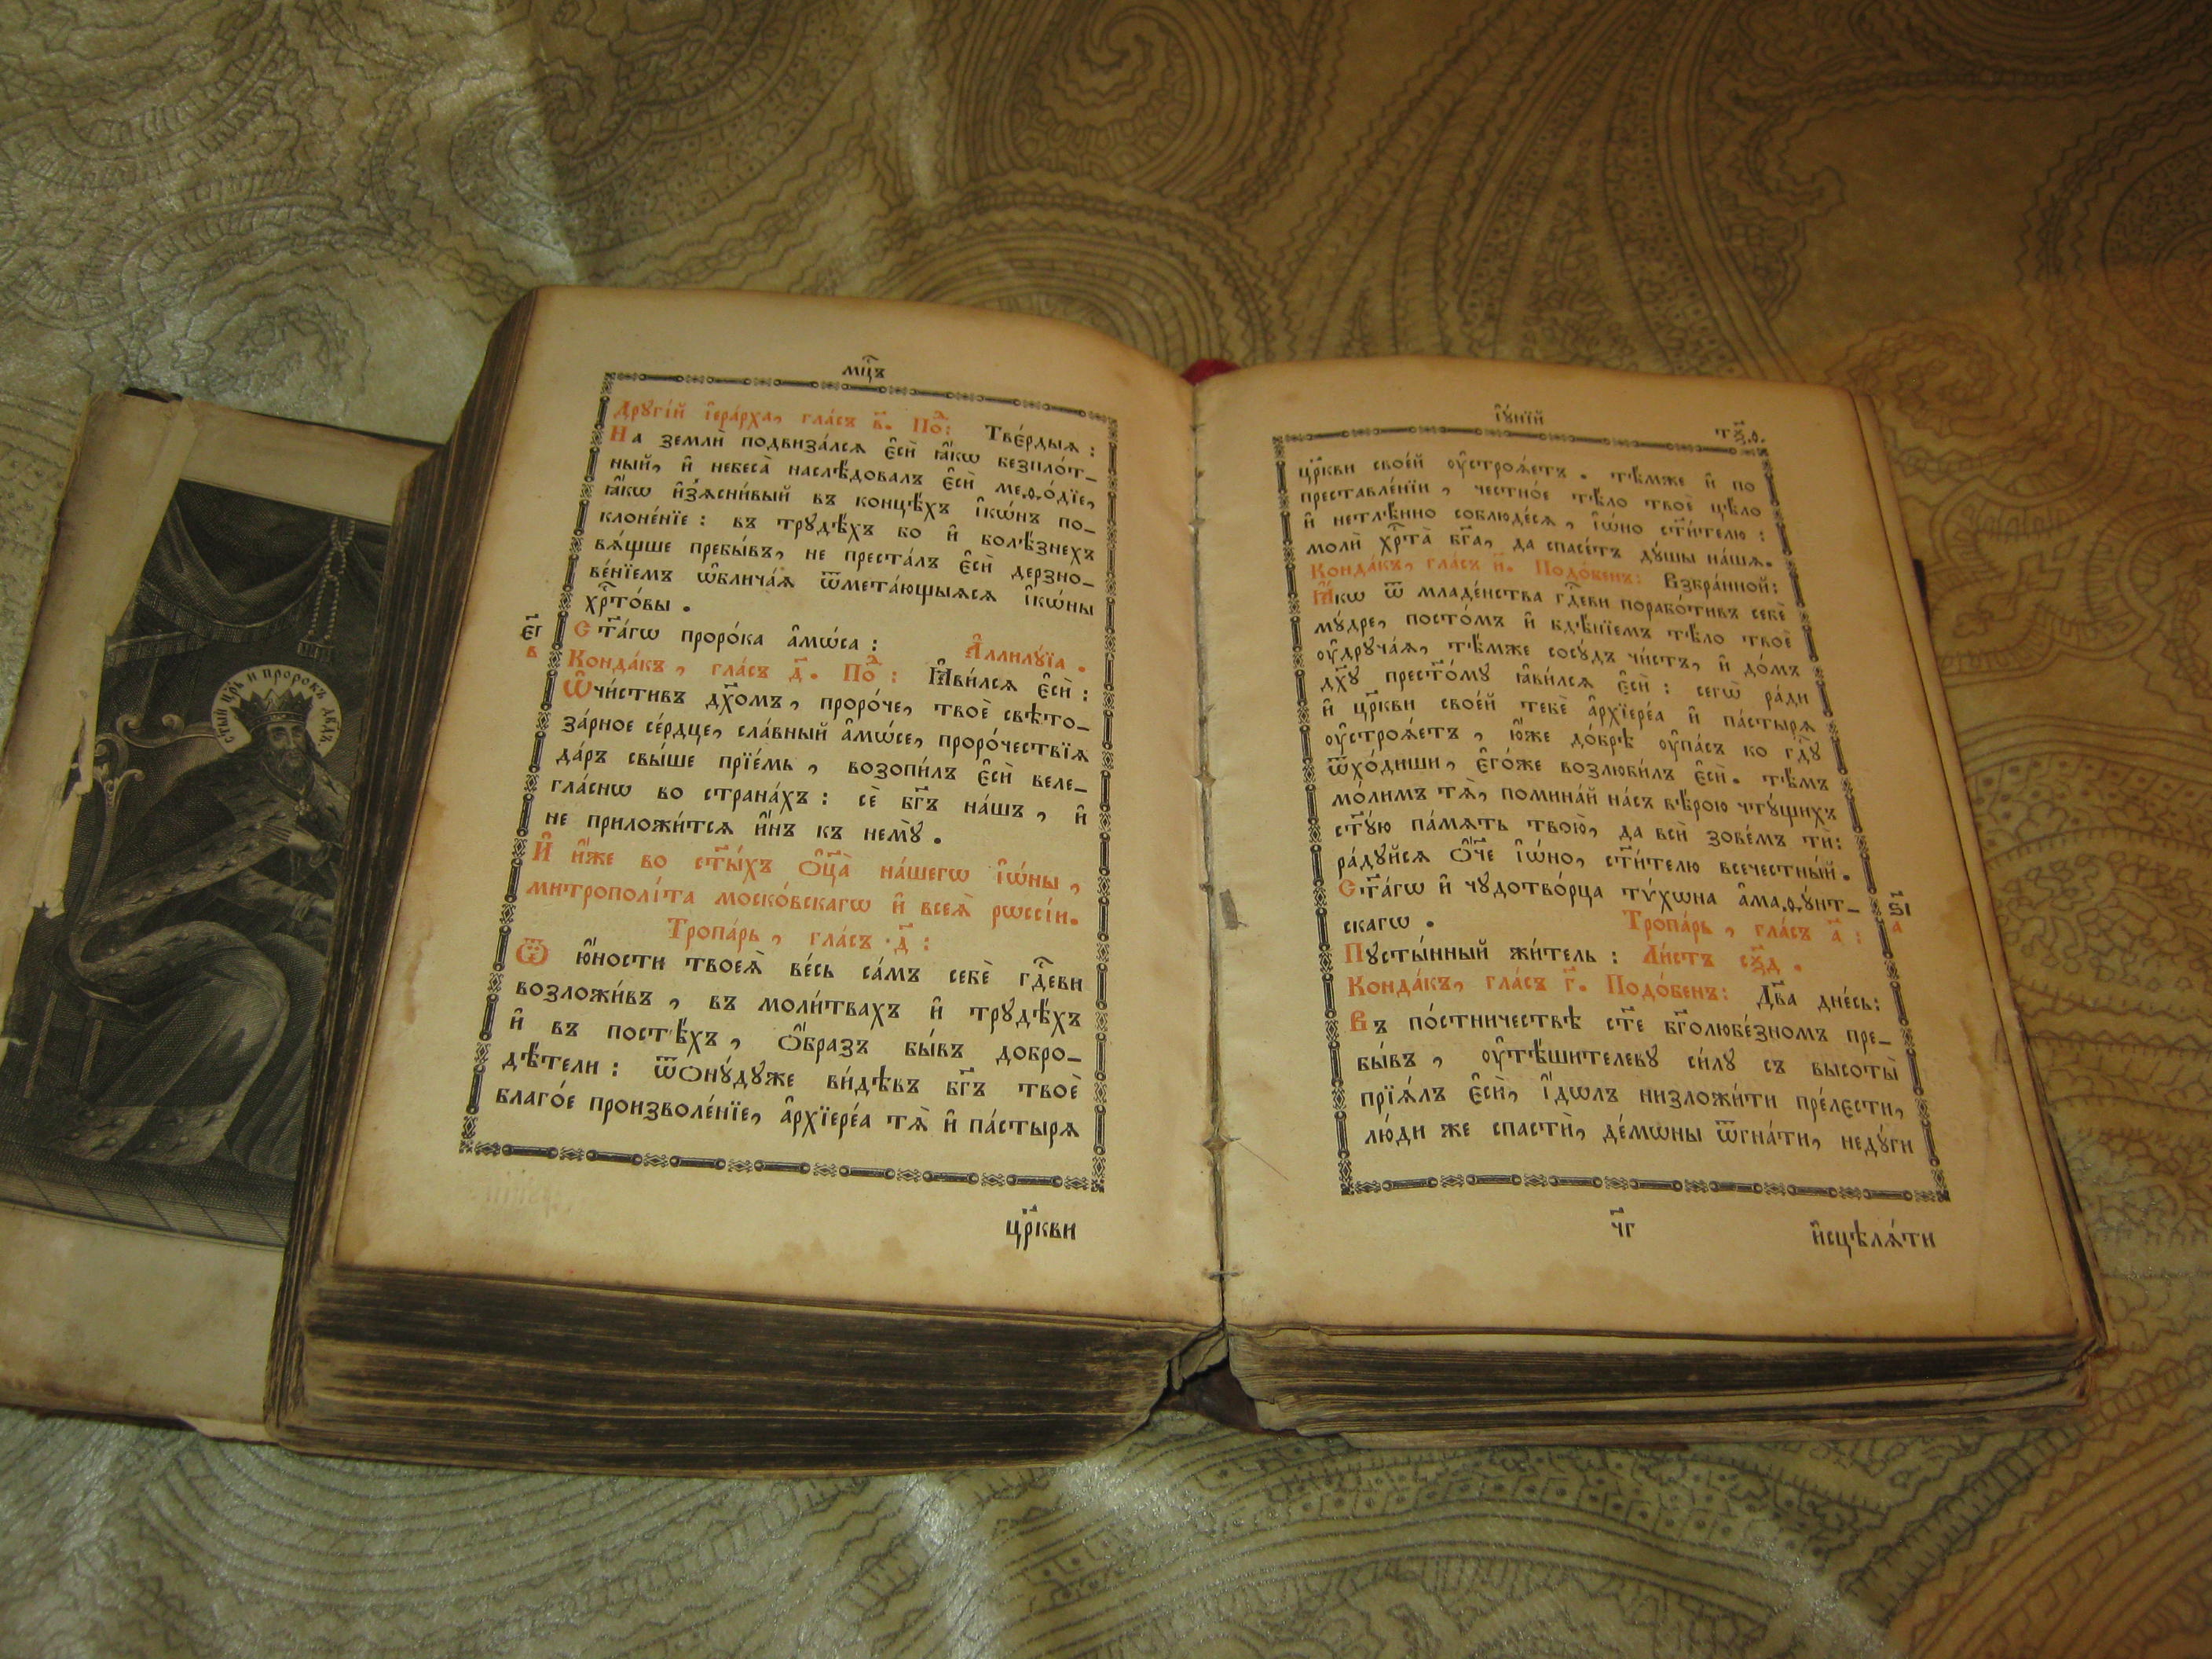 стый црь и пророкъ двдъ.
мц҃ъ
Другі́й і҆ера́рха, гла́съ в҃. По́д: Тве́рдыѧ:
На землѝ подвиза́лсѧ є҆сѝ ꙗ҆́кѡ безпло́т-
ный, и҆ небеса̀ наслѣ́довалъ є҆сѝ меѳо́дїе,
ꙗ҆́кѡ и҆з̾ѧсни́вый въ концѣ́хъ і҆кѡ́нъ по-
клоне́нїе: въ трудѣ́хъ бо и҆ болѣ́знехъ
вѧ́щше пребы́въ, не преста́лъ є҆сѝ дерзно-
ве́нїемъ ѡ҆блича́ѧ ѿмета́ющыѧсѧ і҆кѡ́ны
хрⷭ҇то́вы.
є҃і
Ст҃а́гѡ проро́ка а҆мѡ́са: А҆ллилꙋ́їа.
в
Конда́къ, гла́съ д҃. По́д: Ꙗ҆ви́лсѧ є҆сѝ:
Ѡ҆чи́стивъ дх҃омъ, проро́че, твоѐ свѣто-
за́рное се́рдце, сла́вный а҆мѡ́се, проро́чествїѧ
да́ръ свы́ше прїе́мь, возопи́лъ є҆сѝ веле-
гла́снѡ во страна́хъ: сѐ бг҃ъ на́шъ, и҆
не приложи́тсѧ и҆́нъ къ немꙋ̀.
И҆ и҆́же во ст҃ы́хъ ѻ҆ц҃а̀ на́шегѡ і҆ѡ́ны,
митрополі́та моско́вскагѡ и҆ всеѧ̀ рѡссі́и.
Тропа́рь, гла́съ д҃:
Ѿ ю҆́ности твоеѧ̀ ве́сь са́мъ себѐ гдⷭ҇еви
возложи́въ, въ моли́твахъ и҆ трꙋдѣ́хъ
и҆ въ постѣ́хъ, ѻ҆́бразъ бы́въ добро-
дѣ́тели: ѿѻнꙋ́дꙋже ви́дѣвъ бг҃ъ твоѐ
благо́е произволе́нїе, а҆рхїере́а тѧ̀ и҆ па́стырѧ
црⷭ҇кви
і҆ꙋ́нїй
тѯ҃ѳ.
црⷭ҇кви свое́й ᲂу҆строѧ́етъ. тѣ́мже и҆ по
преставле́нїи, честно́е тѣ́ло твоѐ цѣ́ло
и҆ нетлѣ́нно соблюде́сѧ, і҆ѡ́но ст҃и́телю:
молѝ хрⷭ҇та̀ бг҃а, да спасе́тъ дꙋ́шы на́шѧ.
Конда́къ, гла́съ и҃. Подо́бенъ: Взбра́нной:
Ꙗ҆́кѡ ѿ младе́нства гдⷭ҇еви порабо́тивъ себѐ
мꙋ́дре, посто́мъ и҆ бдѣ́нїемъ тѣ́ло твоѐ
ᲂу҆дрꙋча́ѧ, тѣ́мже сосꙋ́дъ чи́стъ, и҆ до́мъ
дх҃ꙋ прест҃о́мꙋ ꙗ҆ви́лсѧ є҆сѝ: сегѡ̀ ра́ди
и҆ црⷭ҇кви свое́й тебѐ а҆рхїере́а и҆ па́стырѧ
ᲂу҆строѧ́етъ, ю҆́же до́брѣ ᲂу҆па́съ ко гдⷭ҇ꙋ
ѿхо́диши, є҆го́же возлюби́лъ є҆сѝ. тѣ́мъ
мо́лимъ тѧ̀, помина́й на́съ вѣ́рою чтꙋ́щихъ
ст҃ꙋ́ю па́мѧть твою̀, да всѝ зове́мъ тѝ:
ра́дꙋйсѧ ѻ҆́ч҃е і҆ѡ́но, ст҃и́телю всечестны́й.
Ст҃а́гѡ и҆ чꙋдотво́рца тѵ́хѡна а҆маѳꙋнт-
ѕ҃і
скагѡ. Тропа́рь, гла́съ а҃:
а
Пꙋсты́нный жи́тель: Ли́стъ сѯ҃д.
Конда́къ, гла́съ г҃. Подо́бенъ: Дв҃а дне́сь:
Въ по́стничествѣ ст҃е бг҃олюбе́зномъ пре-
бы́въ, ᲂу҆тѣ́шителевꙋ си́лꙋ съ высоты̀
прїѧ́лъ є҆сѝ, і҆́дѡлъ низложи́ти пре́лєсти,
лю́ди же спастѝ, де́мѡны ѿгна́ти, недꙋ́ги
ч҃г
и҆сцѣлѧ́ти